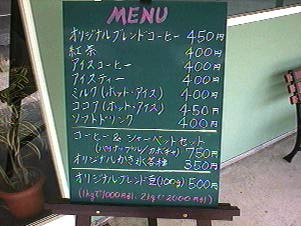 MENU
オリジナルブレンドコーヒー 450円
紅茶 400円
アイスコーヒー 400円
アイスティー 400円
ミルク(ホット・アイス) 400円
ココア(ホット・アイス) 450円
ソフトドリンク 400円
コーヒー & シャーベットセット
750円
オリジナルかき氷各種 350円
オリジナルブレンド豆(100g) 500円
(1kgで1000円引, 2kgで2000円引)